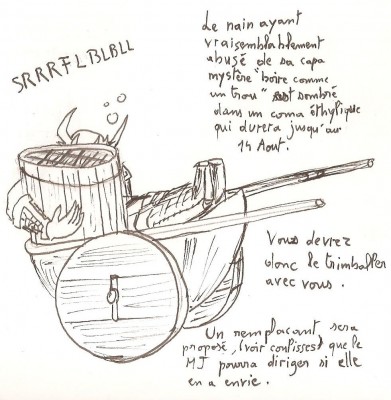 SRRRFLBLBLL
Le nain ayant
vraisemblablement
abusé de sa capa
mystère "boire comme
un trou" est sombré
dans un coma éthylique
qui durera jusqu'au
14 Aout.
Vous devrez
donc le trimballer
avec vous.
Un remplaçant sera
proposé, (voir coulisses) que le
MJ pourra diriger si elle
en a envie.